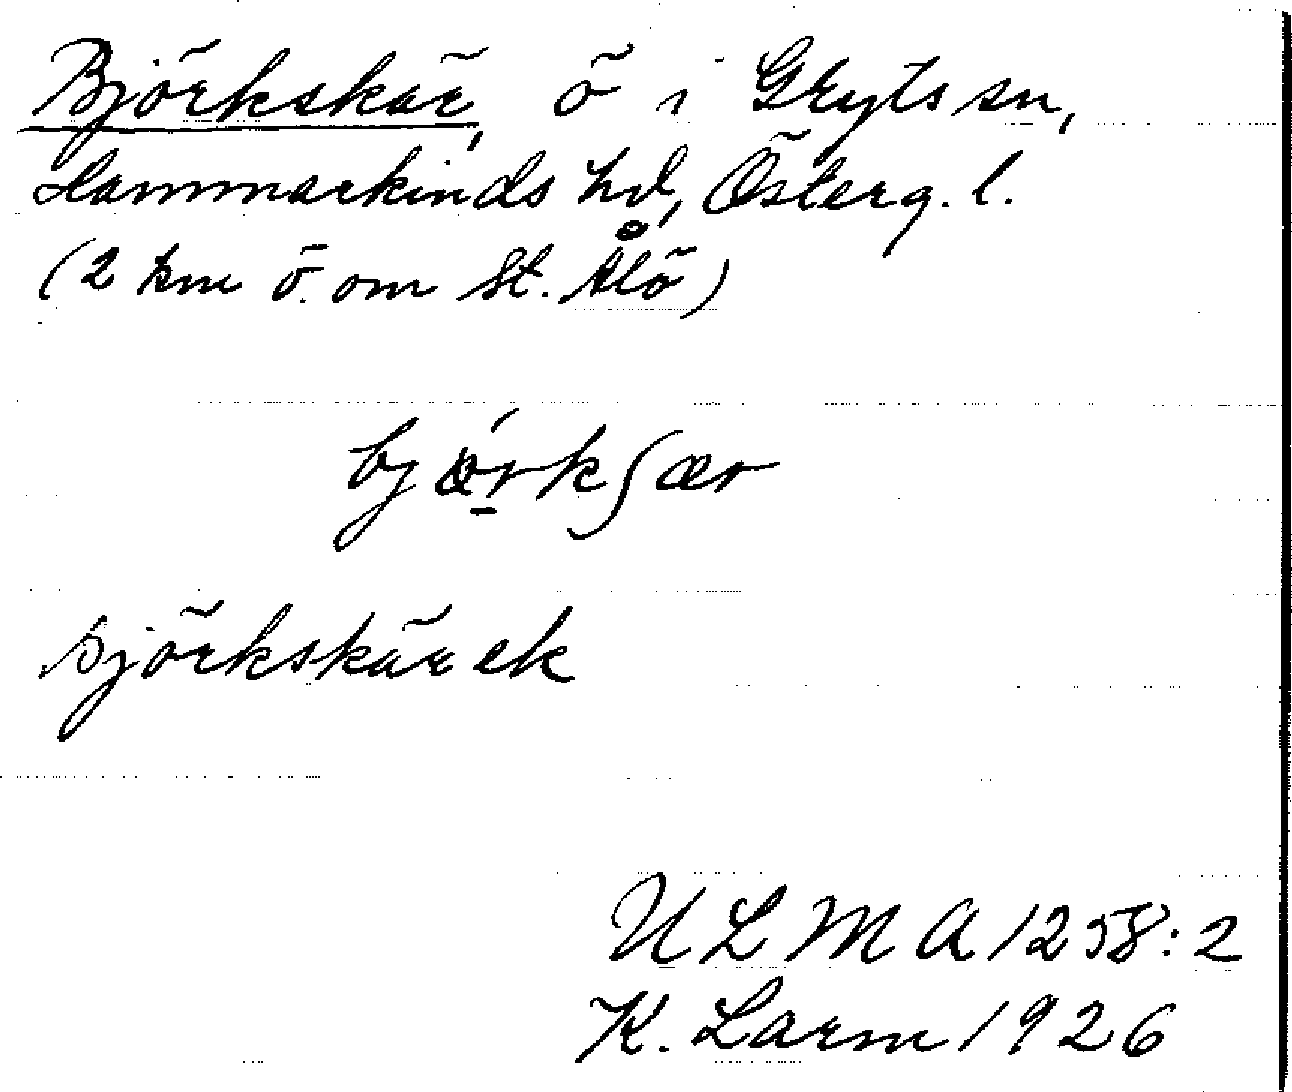 Björkskär, ö i Gryts sn,
Hammarkinds hd, Österg. l.
(2 km ö. om St. Ålö)
björkʃær
Björkskär ek
U L M A 1258:2
K. Larm 1926